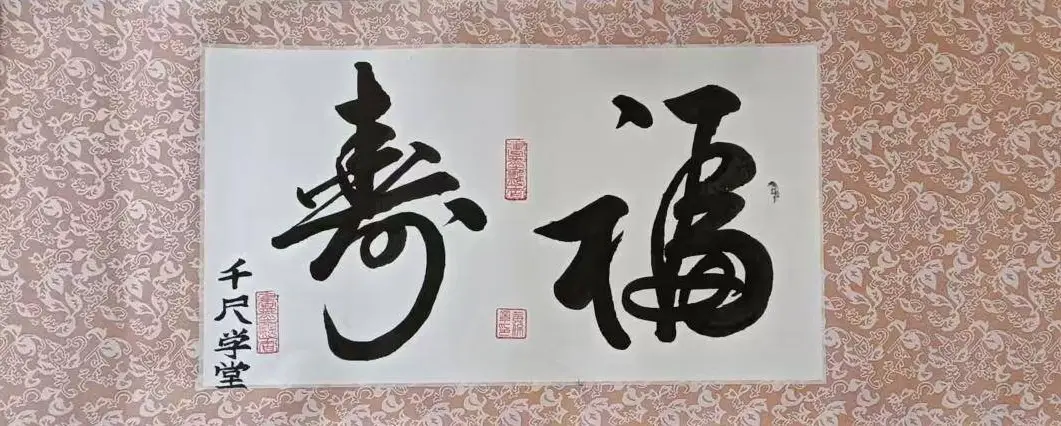 福寿
千尺学堂